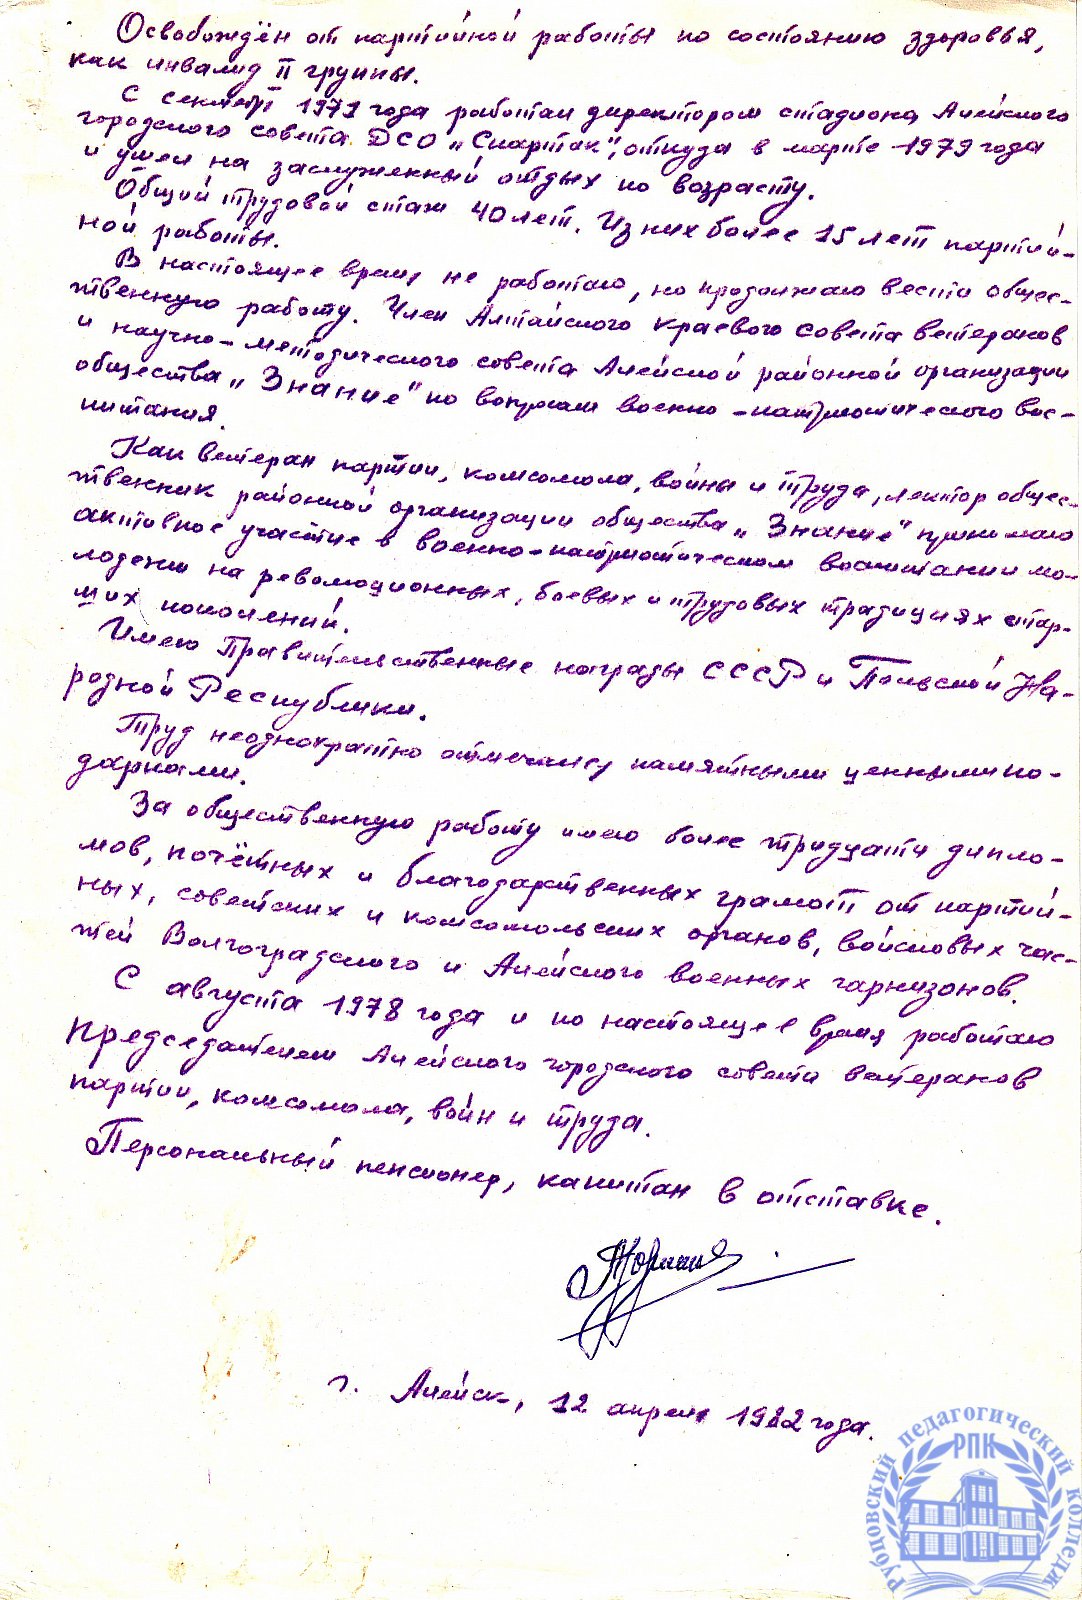 Освобождён от партийной работы по состоянию здоровья,
как инвалид II группы.
С сентября 1979 года работал директором стадиона Алейского
городского совета ДСО „Спартак", откуда в марте 1979 года
и ушел на заслуженный отдых по возрасту.
Общий трудовой стаж 40 лет. Из них более 15 лет партий-
ной работы.
В настоящее время не работаю, но продолжаю вести общес-
твенную работу. Член Алтайского краевого совета ветеранов
и научно-методического совета Алейской районной организации
общества „Знание" по вопросам военно-патриотического вос-
питания.
Как ветеран партии, комсомола, войны и труда, лектор общес-
твенник районной организации общества „Знание" принимаю
активное участие в военно-патриотическом воспитании мо-
лодежи на революционных, боевых и трудовых традициях стар-
ших поколений.
Имею Правительственные награды СССР и Польской На-
родной Республики.
Труд неоднократно отмечался памятными ценными по-
дарками.
За общественную работу имею более тридцати дипло-
мов, почётных и благодарственных грамот от партий-
ных, советских и комсомольских органов, войсковых час-
тей Волгоградского и Алейского военных гарнизонов.
С августа 1978 года и по настоящее время работаю
Председателем Алейского городского совета ветеранов
партии, комсомола, войн и труда.
Персональный пенсионер, капитан в отставке.
г. Алейск, 12 апреля 1982 года.
Рубцовский педагогический колледж
РПК